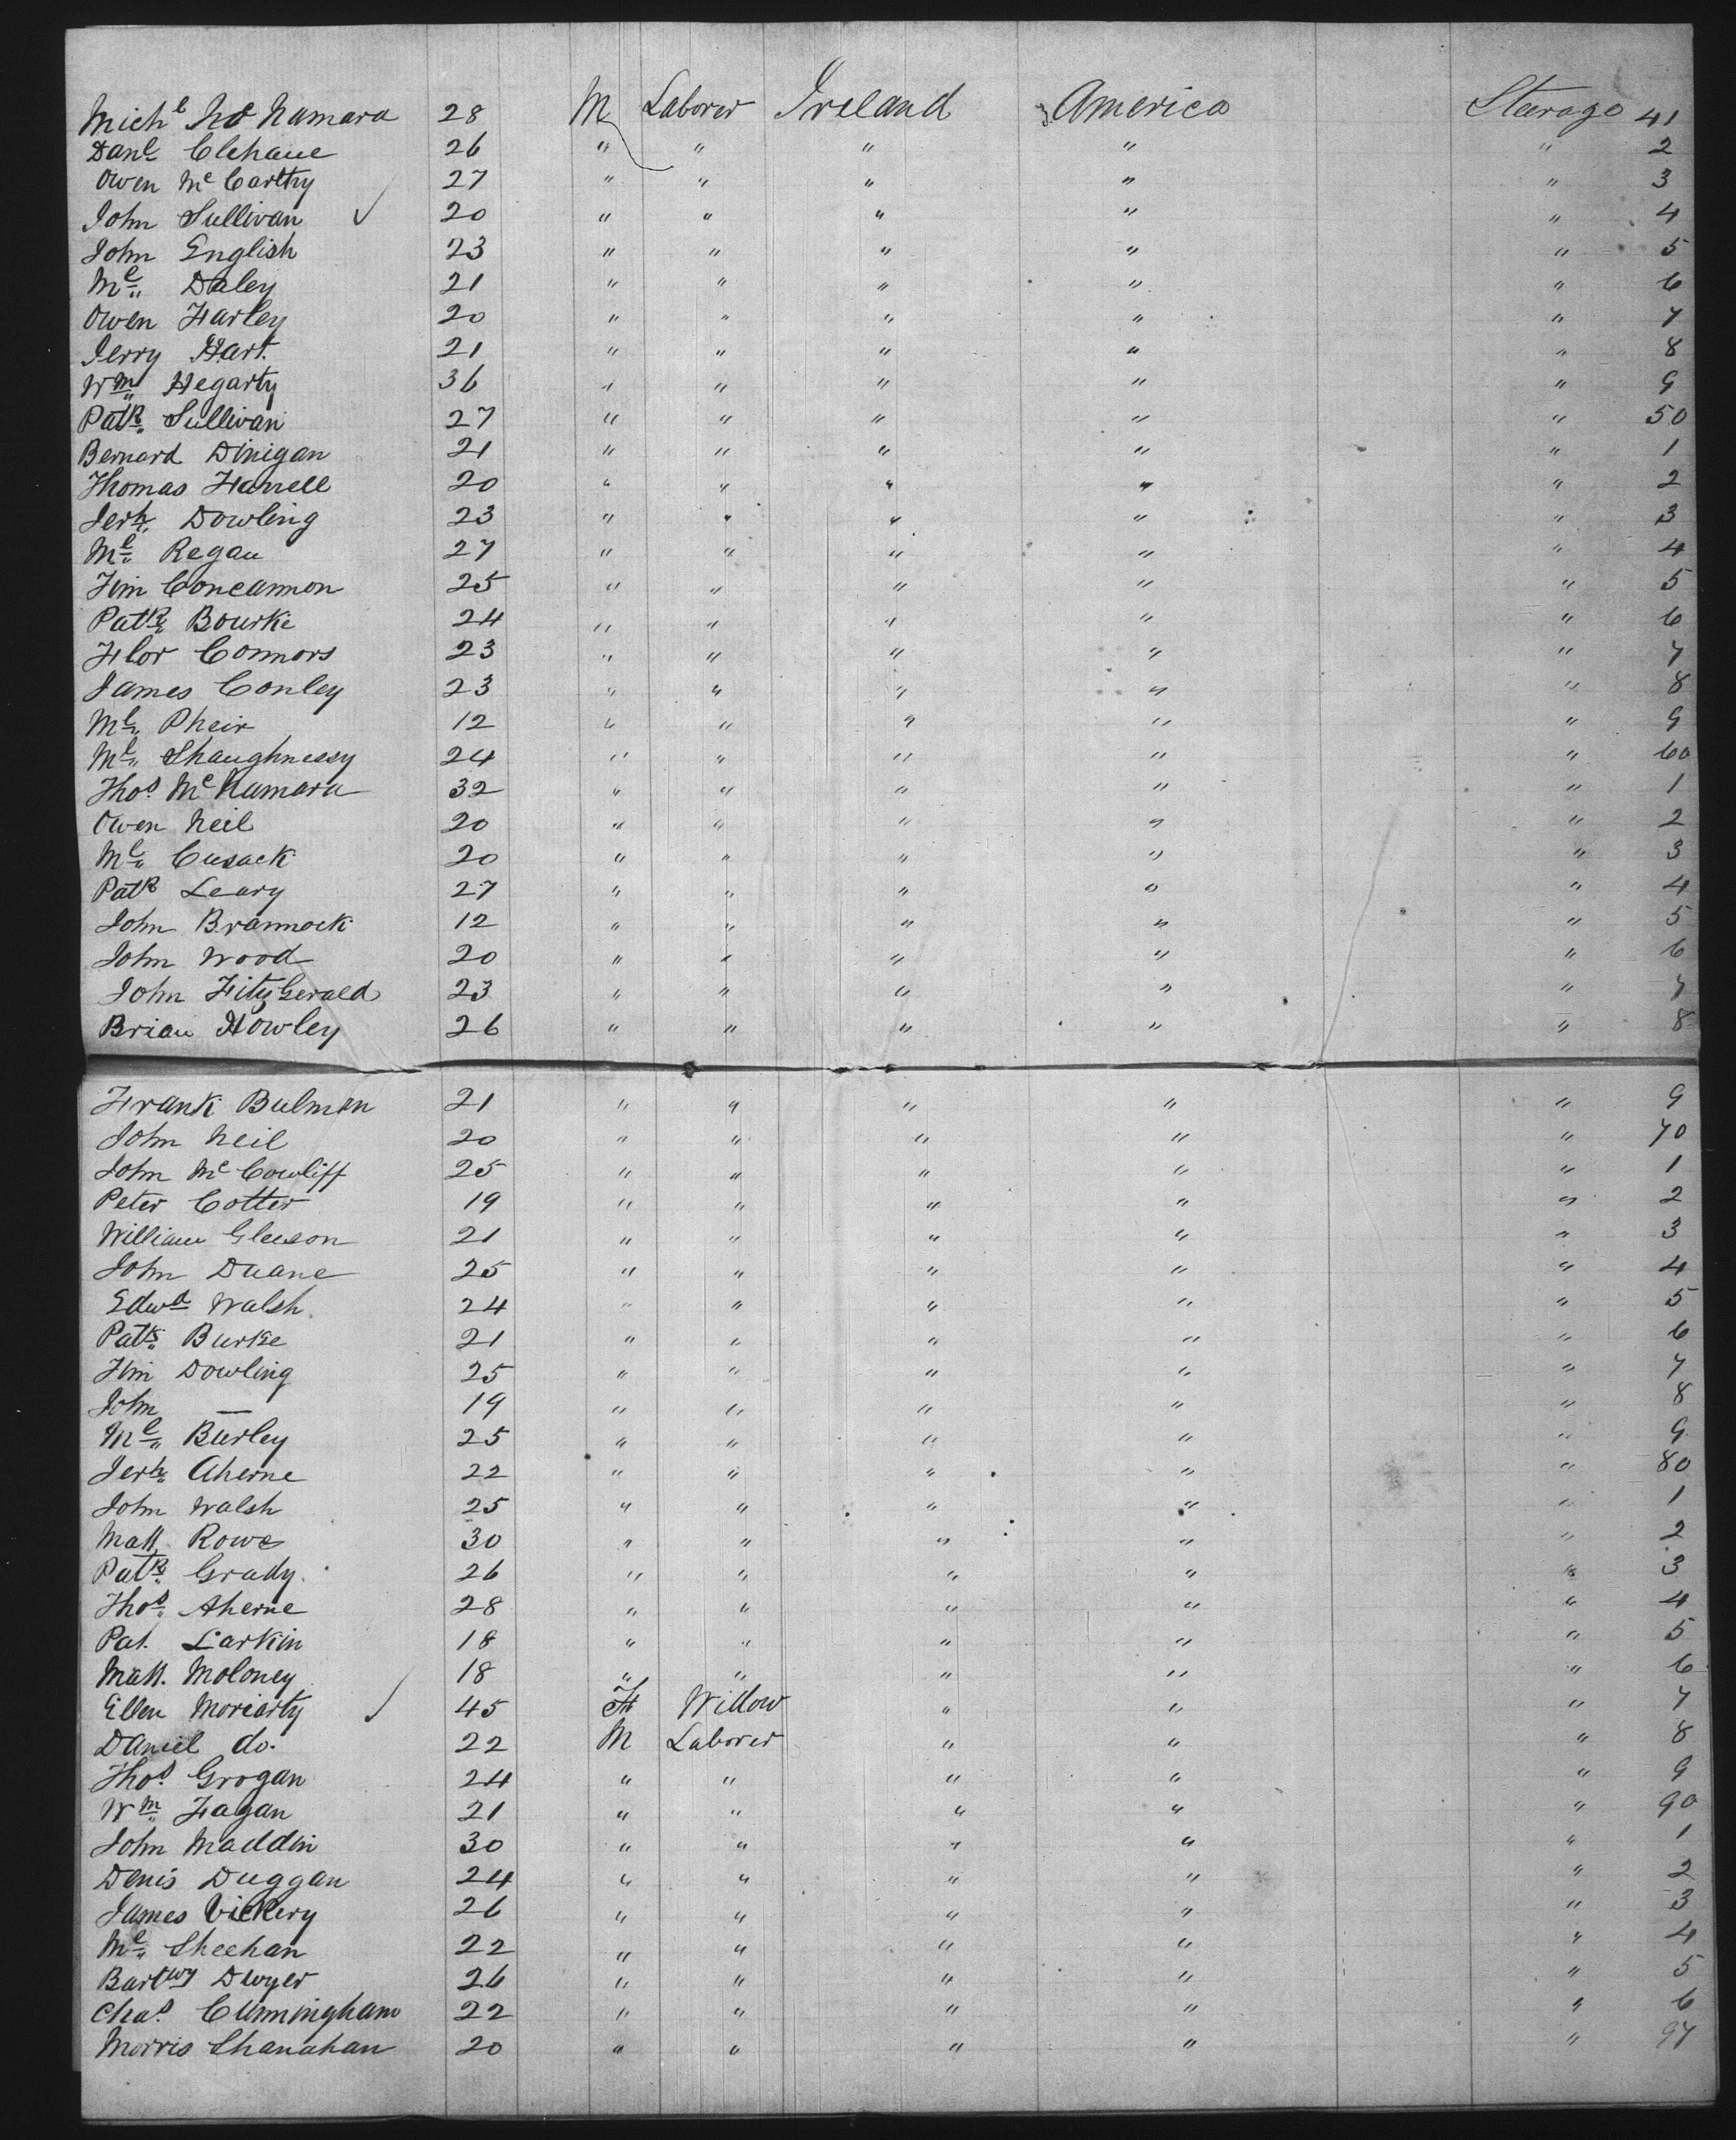 Mich^l Mc Namara 28 M Laborer Ireland America Steerage 41
Dan^l Clehane 26 " " " " " 2
Owen Mc Carthy 27 " " " " " 3
John Sullivan ✓ 20 " " " " " 4
John English 23 " " " " " 5
M^l Daley 21 " " " " " 6
Owen Harley 20 " " " " " 7
Jerry Hart. 21 " " " " " 8
W^m Hegarty 36 " " " " " 9
Pat^k Sullivan 27 " " " " " 50
Bernard Dinigan 21 " " " " " 1
Thomas Farrell 20 " " " " " 2
Jer^h Dowling 23 " " " " " 3
M^l Regan 27 " " " " " 4
Tim Concannon 25 " " " " " 5
Pat^k Bourke 24 " " " " " 6
Flor Connors 23 " " " " " 7
James Conley 23 " " " " " 8
M^l Pheir 12 " " " " " 9
M^l Shaughnessy 24 " " " " " 60
Tho^s McNamara 32 " " " " " 1
Owen Neil 20 " " " " " 2
M^l Cusack 20 " " " " " 3
Pat^k Leary 27 " " " " " 4
John Brannock 12 " " " " " 5
John Wood 20 " " " " " 6
John FitzGerald 23 " " " " " 7
Brian Howley 26 " " " " " 8
Frank Bulman 21 " " " " " 9
John Neil 20 " " " " " 70
John McCowliff 25 " " " " " 1
Peter Cotter 19 " " " " " 2
William Gleeson 21 " " " " " 3
John Duane 25 " " " " " 4
Edw^d Walsh 24 " " " " " 5
Pat^k Burke 21 " " " " " 6
Tim Dowling 25 " " " " " 7
John — 19 " " " " " 8
M^l Burley 25 " " " " " 9
Jer^h Aherne 22 " " " " " 80
John Walsh 25 " " " " " 1
Matt. Rowe 30 " " " " " 2
Pat^k Grady. 26 " " " " " 3
Tho^s Aherne 28 " " " " " 4
Pat. Larkin 18 " " " " " 5
Matt. Moloney 18 " " " " " 6
Ellen Moriarty ✓ 45 F Widow " " " 7
Daniel do. 22 M Laborer " " " 8
Tho^s Grogan 24 " " " " " 9
W^m Fagan 21 " " " " " 90
John Maddin 30 " " " " " 1
Denis Duggan 24 " " " " " 2
James Vickery 26 " " " " " 3
M^l Sheehan 22 " " " " " 4
Bart^wy Dwyer 26 " " " " " 5
Cha^s Cunningham 22 " " " " " 6
Morris Shanahan 20 " " " " " 97